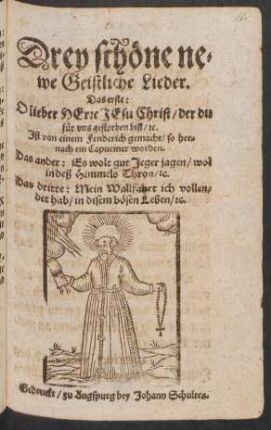 Drey schöne ne-
we Geistliche Lieder.
Das erste:
O lieber HErre JEsu Christ / der du
für vns gestorben bist / ꝛc.
Ist von einem Fenderich gemacht / so her-
nach ein Capuciner worden.
Das ander: Es wolt gut Jeger jagen / wol
in deß Himmels Thron / ꝛc.
Das dritte: Mein Wallfahrt ich vollen-
det hab / in disem bösen Leben / ꝛc.
Gedruckt / zu Augspurg bey Johann Schultes.